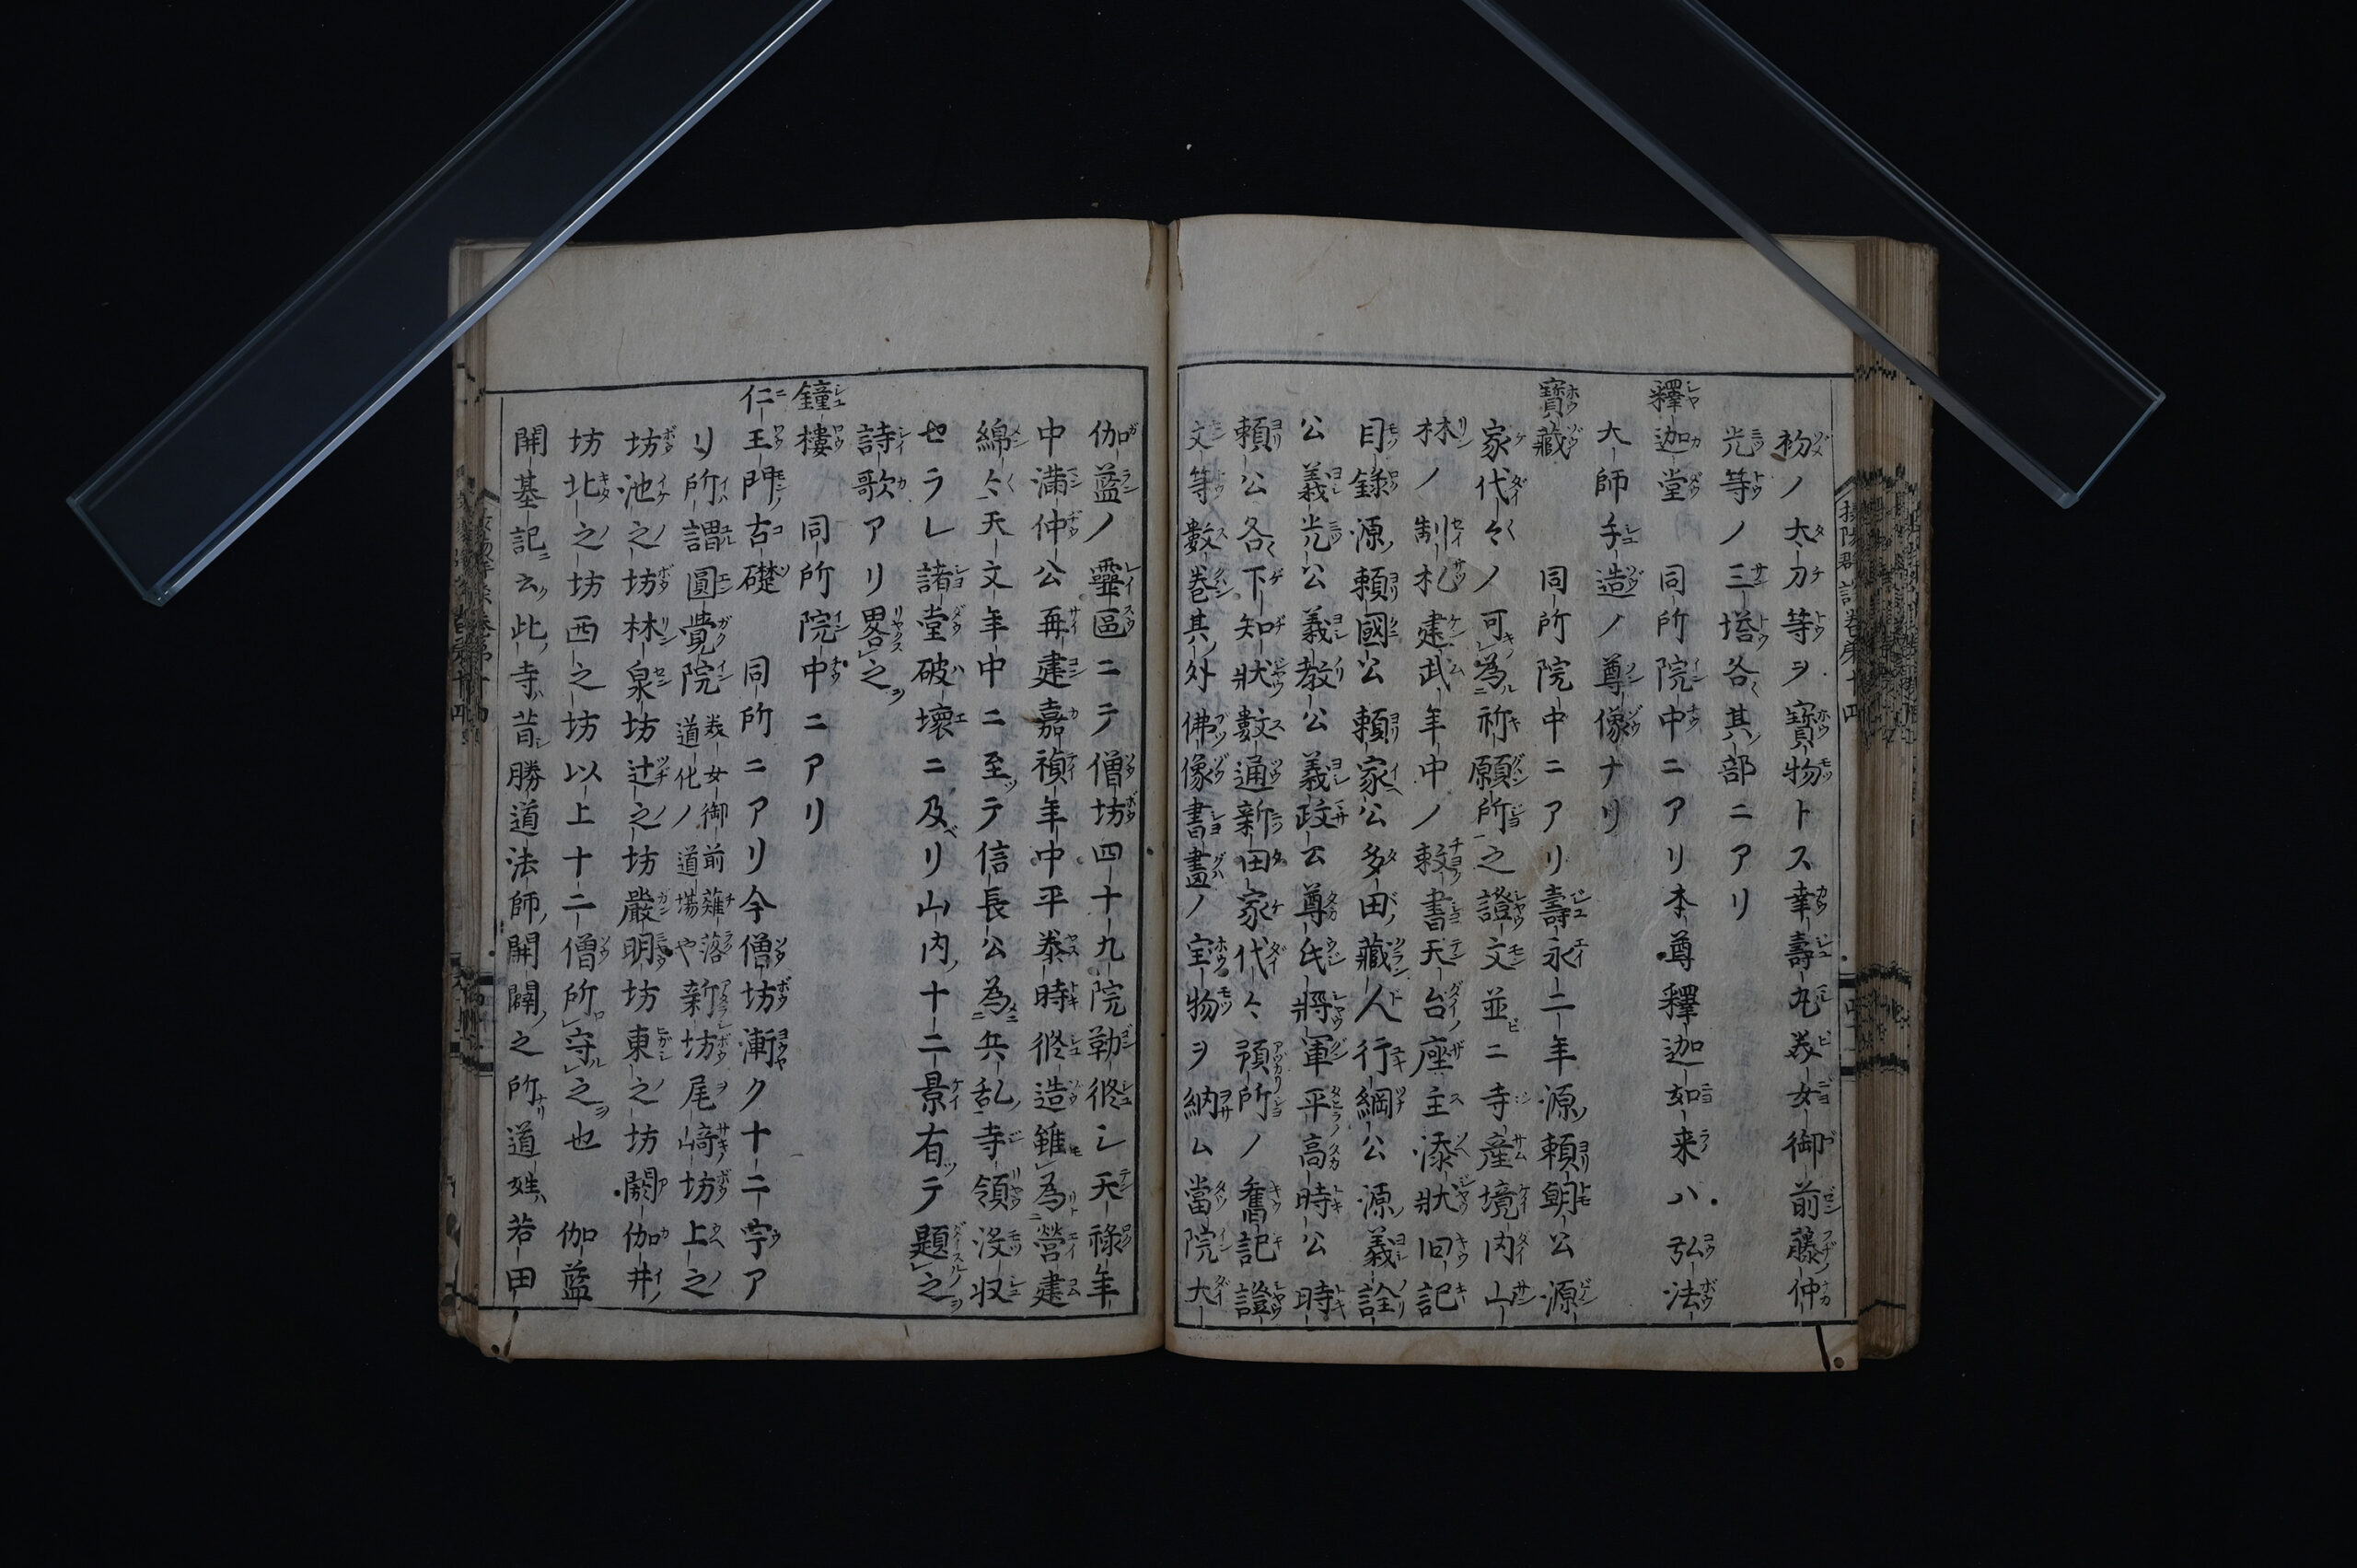 初ノ太刀等ヲ寶物トス幸壽丸美女御前藤仲
光等ノ三塔各其部ニアリ
釋迦堂 同所院中ニアリ本尊釋迦如来ハ弘法
大師手造ノ尊像ナリ
寶藏 同所院中ニアリ壽永二年源頼朝公源
家代々ノ可為祈願所之證文並ニ寺産境内山
林ノ制札建武年中ノ敕書天台座主添状旧記
目錄源頼國公頼家公多田藏人行綱公源義詮
公義光公義教公義政公尊氏將軍平高時公時
頼公各下知状數通新田家代々預所ノ舊記證
文等數巻其外佛像書畫ノ宝物ヲ納ム當院大
伽藍ノ靈區ニテ僧坊四十九院勒修シ天祿年
中滿仲公再建嘉禎年中平泰時修造雖為營建
綿々天文年中ニ至テ信長公為兵乱寺領没収
セラレ諸堂破壞ニ及ベリ山内十二景有テ題之
詩歌アリ畧之
鐘樓 同所院中ニアリ
仁王門古礎 同所ニアリ今僧坊漸ク十二宇ア
リ所謂圓覺院美女御前薙落道化ノ道場や新坊尾﨑坊上之
坊池之坊林泉坊辻之坊嚴明坊東之坊閼伽井
坊北之坊西之坊以上十二僧所守之也 伽藍
開基記云此寺昔勝道法師開闢之所道姓若田